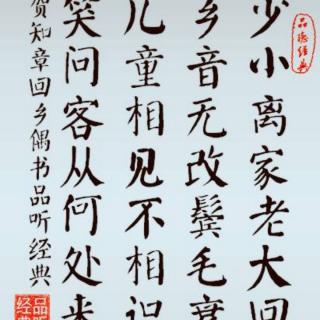 少小离家老大回
乡音无改鬓毛衰
儿童相见不相识
笑问客从何处来
贺知章回乡偶书品听经典
品听经典
品听经典